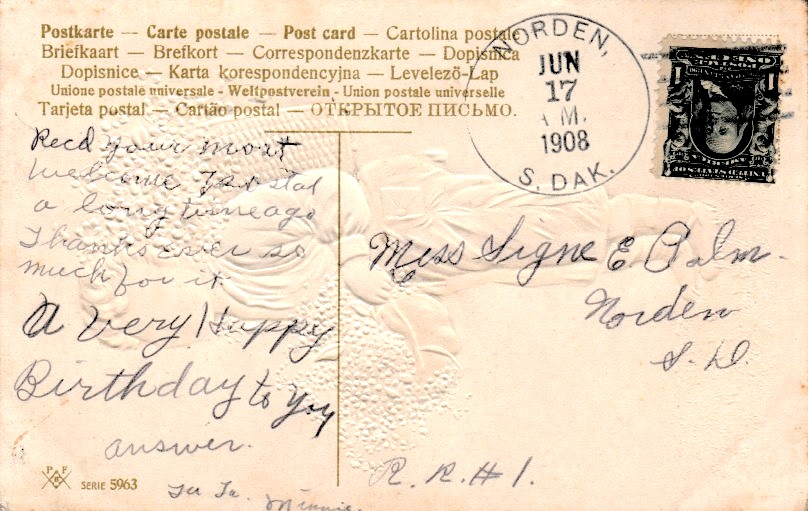 Postkarte — Carte postale — Post card — Cartolina postale
Briefkaart — Brefkort — Correspondenzkarte — Dopisnica
Dopisnice — Karta korespondencyjna — Levelező-Lap
Unione postale universale - Weltpostverein - Union postale universelle
Tarjeta postal — Cartão postal — ОТКРЫТОЕ ПИСЬМО.
NORDEN,
JUN
17
A M.
1908
S. DAK.
UNITED STATES OF
AMERICA
ONE
1 1
Recd your most
welcome postal
a long time ago
Thanks ever so
much for it
A Very Happy
Birthday to You
answer.
Minnie.
Miss Signe E. Palm.
Norden
S. D.
R. R. # 1.
P F
SERIE 5963